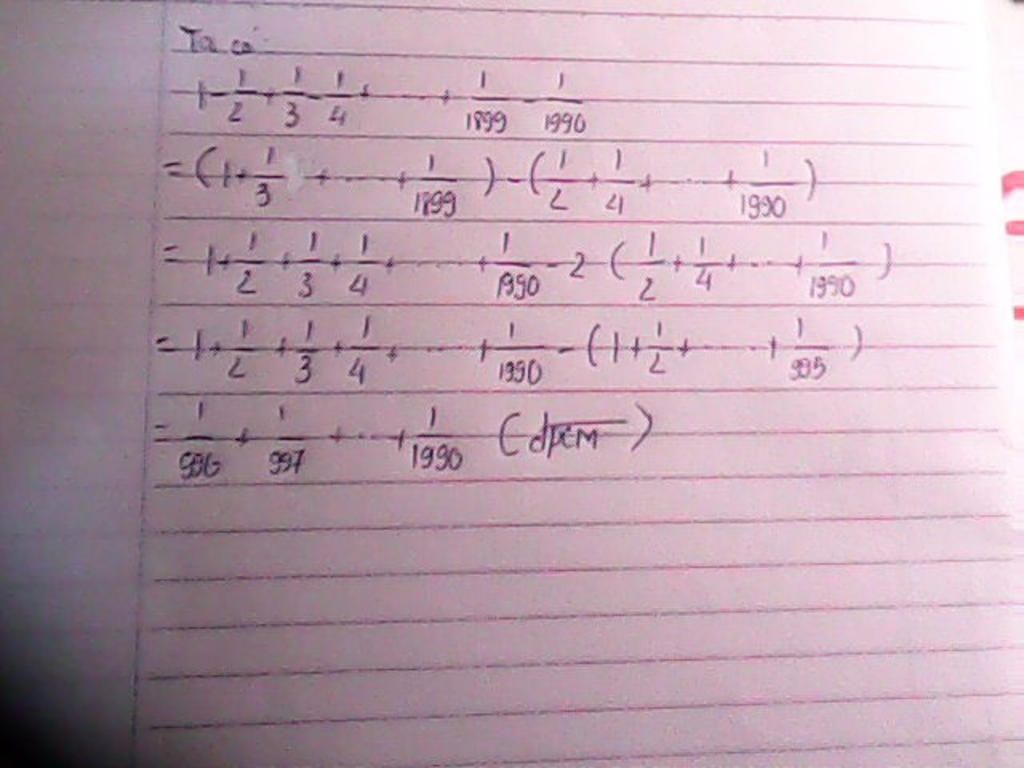 Ta có
1 - 1/2 + 1/3 - 1/4 + ..... + 1/1899 - 1/1990
= (1 + 1/3 + ..... + 1/1899) - (1/2 + 1/4 + ..... + 1/1990)
= 1 + 1/2 + 1/3 + 1/4 + ..... + 1/1990 - 2 (1/2 + 1/4 + ... + 1/1990)
= 1 + 1/2 + 1/3 + 1/4 + ..... + 1/1990 - (1 + 1/2 + ..... + 1/995)
= 1/996 + 1/997 + ... + 1/1990 (đpcm)